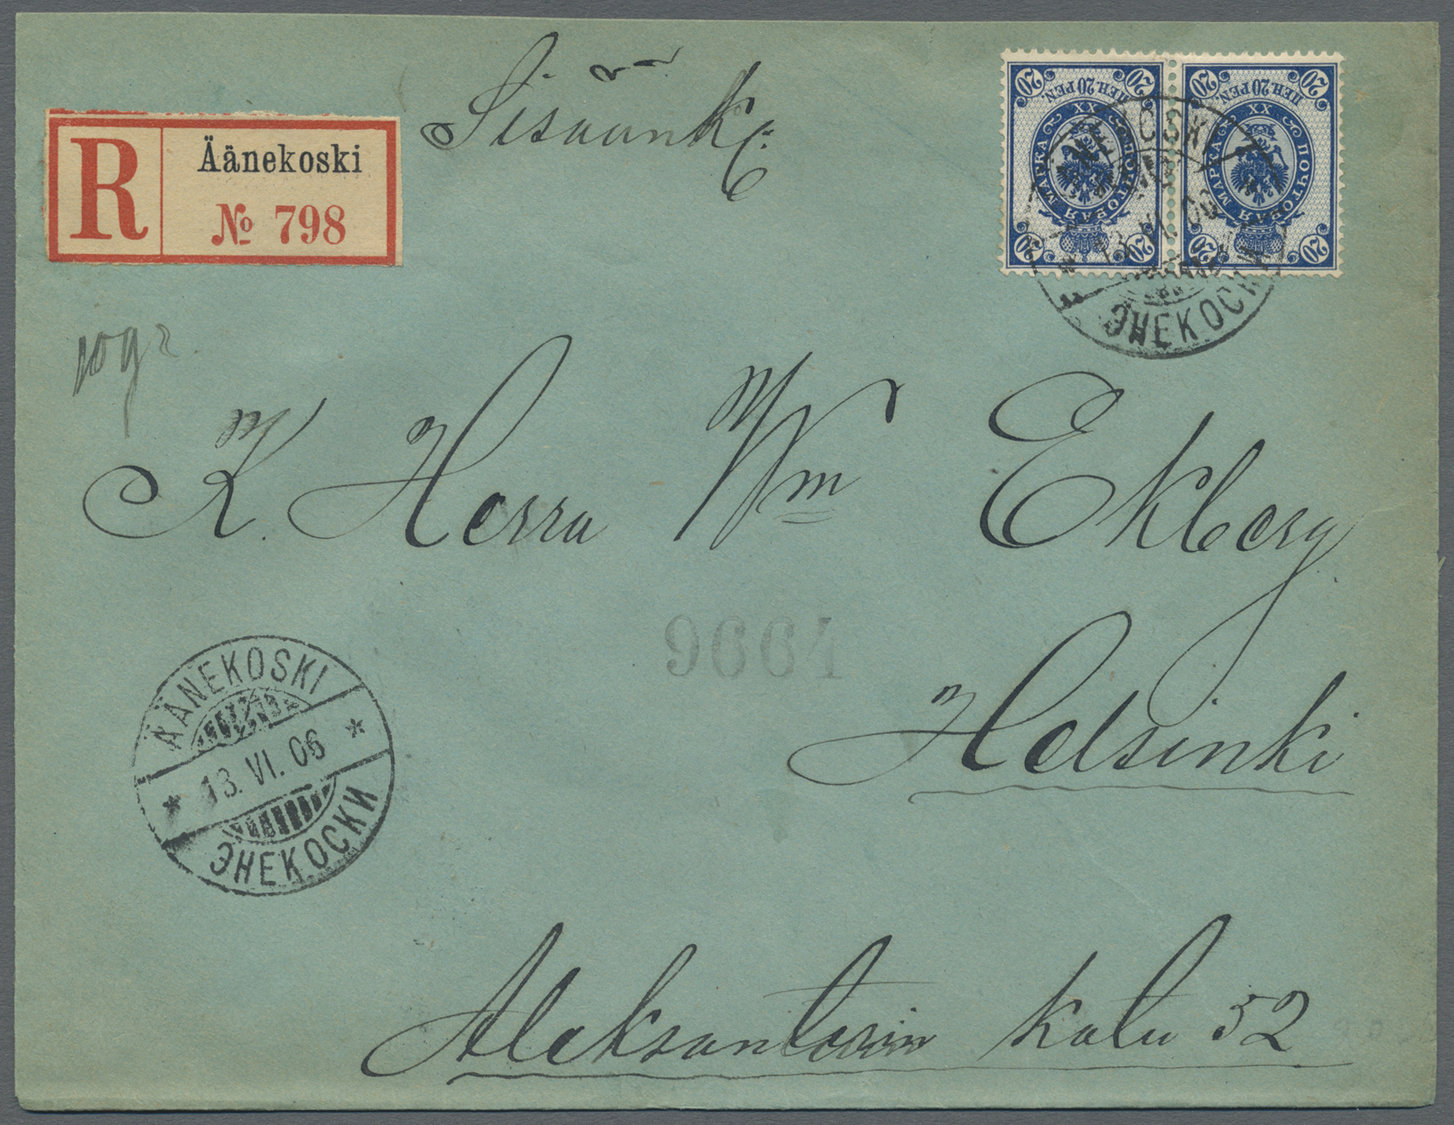 Sisäänk:
R Äänekoski
№ 798
20 ПЕН.20 PEN. 20
МАРКА XX ПОЧТОВАЯ
20 20
20 ПЕН.20 PEN. 20
МАРКА XX ПОЧТОВАЯ
20 20
ЭНЕКОСКИ
10 gr
K. Herra Wm Ekberg
9664
Helsinki
ÄÄNEKOSKI
* 13. VI. 06 *
ЭНЕКОСКИ
Aleksanterin katu 52